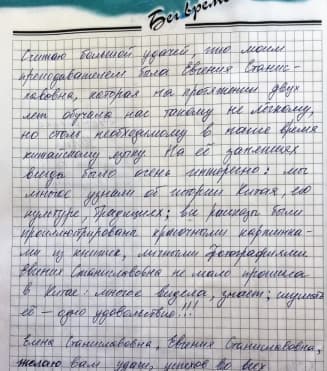 Бег време
Считаю большой удачей, что моим
преподавателем была Евгения Станис-
лавовна, которая на протяжении двух
лет обучала нас такому не лёгкому,
но столь необходимому в наше время
китайскому языку. На её занятиях
всегда было очень интересно: мы
многое узнали об истории Китая, его
культуре, традициях; все рассказы были
проиллюстрированы красочными картинка-
ми из книжек, личными фотографиями
Евгения Станиславовна не мало прожила
в Китае: многое видела, знает; слушать
её - одно удовольствие!!!
Елена Станиславовна, Евгения Станиславовна,
желаю вам удачи, успехов во всех